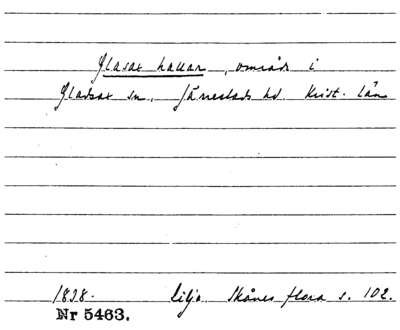 Glasax hallar, område i
Gladsax sn, Järrestads hd. Krist. län
1838. Lilja Skånes flora s. 102.
Nr 5463.